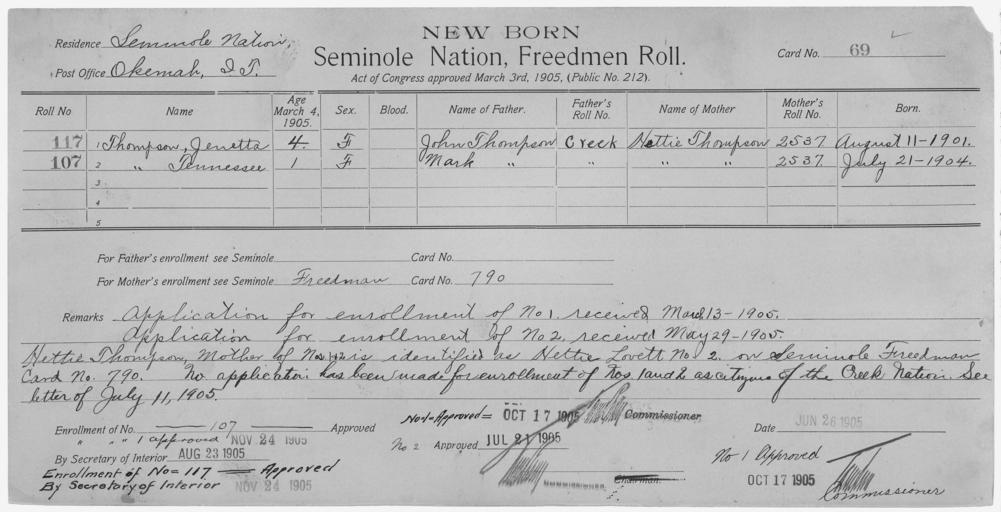 NEW BORN
Seminole Nation, Freedmen Roll.
Act of Congress approved March 3rd, 1905, (Public No. 212).
Residence Seminole Nation,
Post Office Okemah, I.T.
Card No. 69
Roll No Name Age March 4, 1905. Sex. Blood. Name of Father. Father's Roll No. Name of Mother Mother's Roll No. Born.
117 1 Thompson, Jenetta 4. F John Thompson Creek Hettie Thompson 2537 August 11-1901.
107 2 " Tennessee 1 F Mark " " " " 2537 July 21-1904.
3
4
5
For Father's enrollment see Seminole Card No.
For Mother's enrollment see Seminole Freedman Card No. 790
Remarks Application for enrollment of No 1. received March 13-1905.
Application for enrollment of No 2, received May 29-1905.
Hettie Thompson, Mother of Nos 1+2 is identified as Hettie Lovett No 2. on Seminole Freedman
Card No. 790. No application has been made for enrollment of Nos 1 and 2 as citizens of the Creek Nation. See
letter of July 11, 1905.
Enrollment of No. 107 Approved
" " " 1 approved NOV 24 1905
By Secretary of Interior AUG 23 1905
Enrollment of No= 117 Approved
By Secretary of Interior NOV 24 1905
No=1=Approved= OCT 17 1905 Commissioner
No 2 Approved JUL 21 1905
Chairman.
Date JUN 26 1905
No 1 Approved
OCT 17 1905
Commissioner